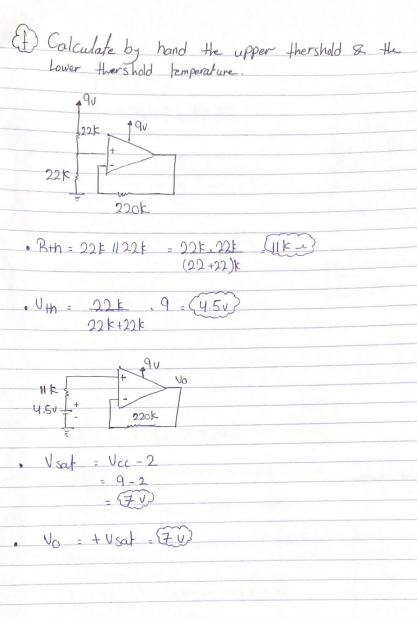 ① Calculate by hand the upper thershold & the
Lower thershold temperature.
9v
22k
9v
+
-
22k
220k
• Rth = 22k || 22k = 22k . 22k / (22+22)k 11k Ω
• Uth = 22k / 22k+22k . 9 = 4.5v
9v
+
-
Vo
11k
4.5v
+
-
220k
• Vsat = Vcc - 2
= 9 - 2
= 7v
• Vo = + Vsat = 7v